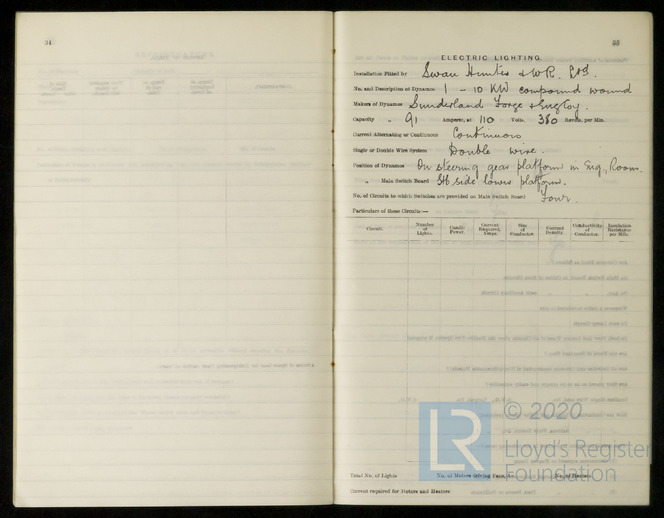 34
35
ELECTRIC LIGHTING.
Installation Fitted by Swan Hunter & W.R. Ltd.
No. and Description of Dynamos 1 - 10 KW compound wound
Makers of Dynamos Sunderland Forge & Engr Coy.
Capacity „ 91 Amperes, at 110 Volts, 380 Revols. per Min.
Current Alternating or Continuous Continuous
Single or Double Wire System Double wire.
Position of Dynamos On steering gear platform in Eng. Room.
„ Main Switch Board Stb side lower platform.
No. of Circuits to which Switches are provided on Main Switch Board Four.
Particulars of these Circuits:—
Circuit. Number of Lights. Candle Power. Current Required, Amps. Size of Conductor. Current Density. Conductivity of Conductor. Insulation Resistance per Mile.
Total No. of Lights No. of Motors driving Fans, &c. No. of Heaters
Current required for Motors and Heaters
LR © 2020
Lloyd's Register
Foundation